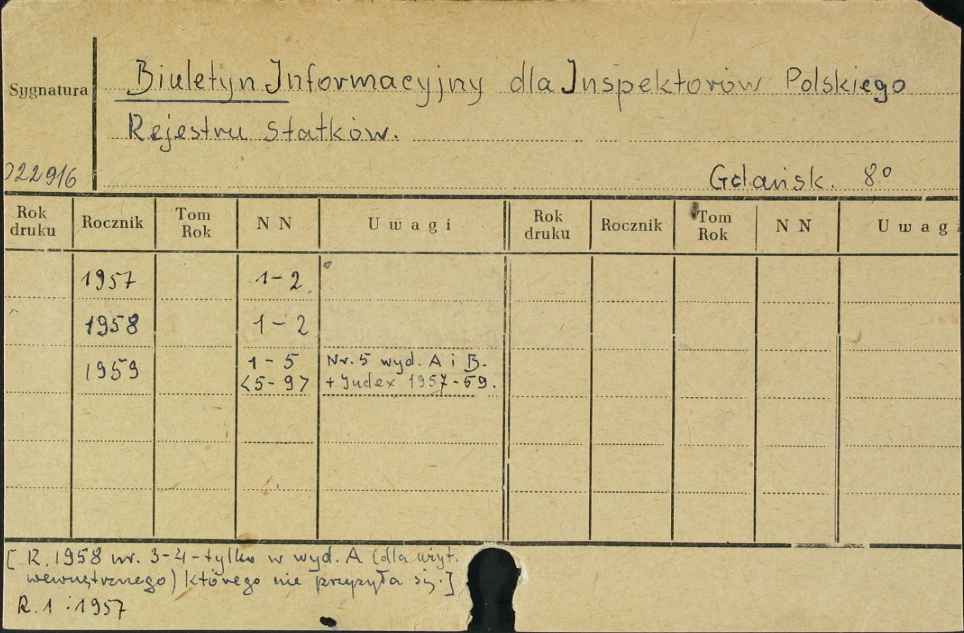 Sygnatura
Biuletyn Informacyjny dla Inspektorów Polskiego
Rejestru Statków.
022916
Gdańsk. 8°
Rok druku Rocznik Tom Rok NN Uwagi Rok druku Rocznik Tom Rok NN Uwagi
1957 1-2
1958 1-2
1959 1-5 Nr. 5 wyd. A i B.
<5-9> + Index 1957-59.
[R. 1958 nr. 3-4 - tylko w wyd. A (dla użyt.
wewnętrznego) którego nie przesyła się.]
R. 1 : 1957